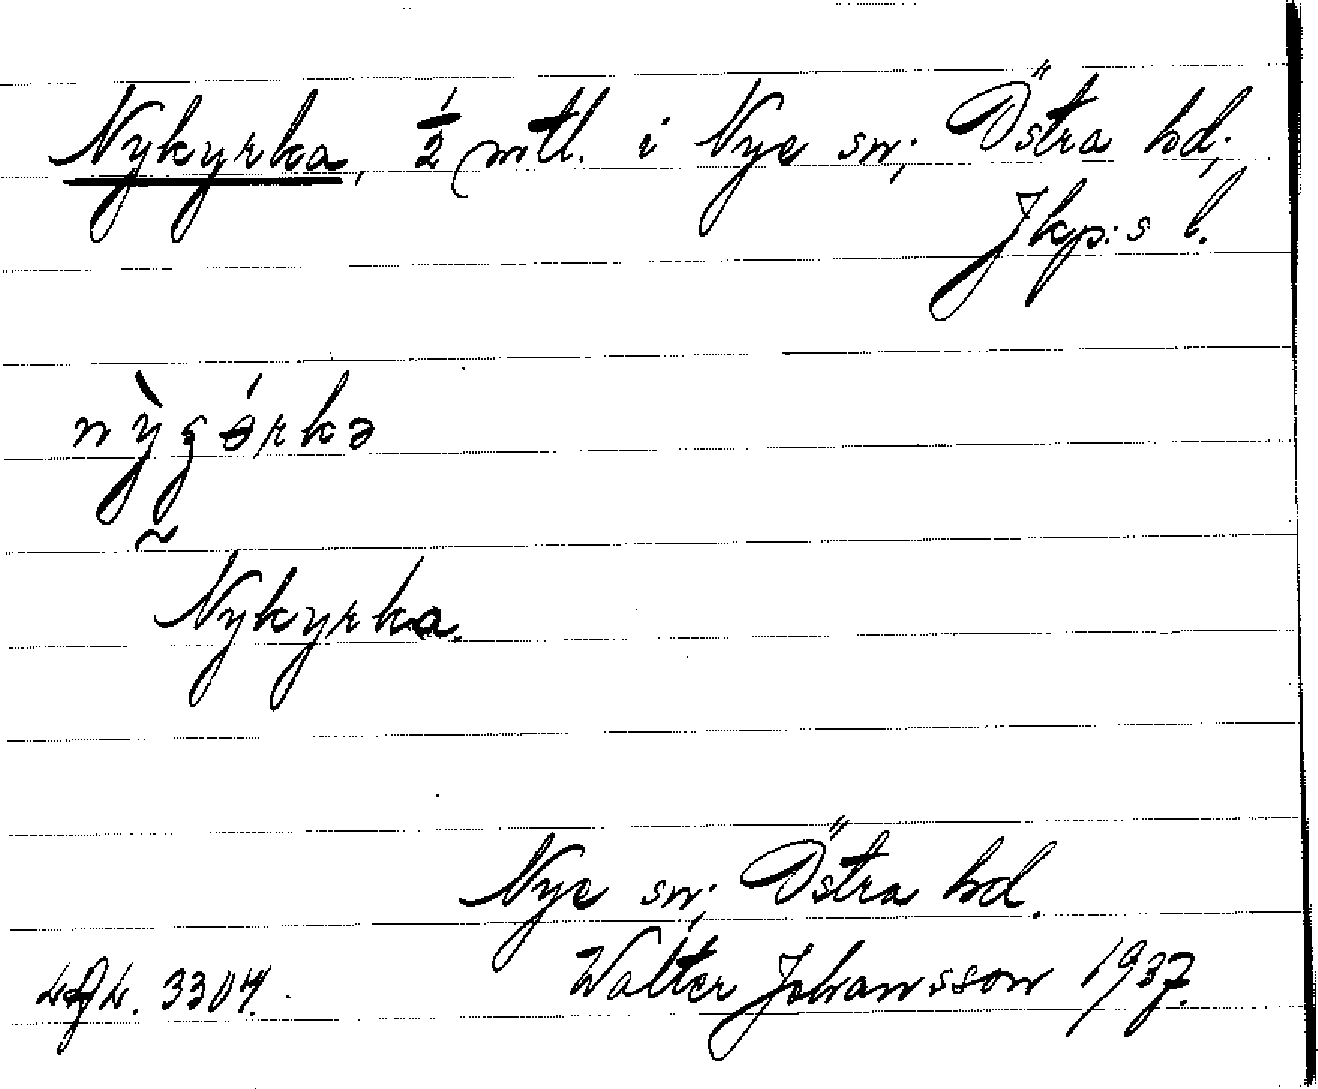 Nykyrka, 1/2 mtl. i Nye sn; Östra hd;
Jkp:s l.
nỳgérkə
Nykyrka.
Nye sn; Östra hd.
Walter Johansson 1937.
3304.